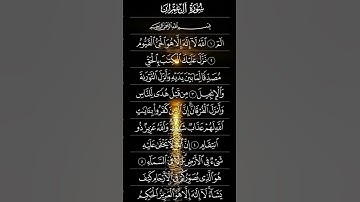 سُورَةُ آلِ عِمْرَانَ
بِسْمِ اللَّهِ الرَّحْمَٰنِ الرَّحِيمِ
الٓمٓ ١ ٱللَّهُ لَآ إِلَٰهَ إِلَّا هُوَ ٱلْحَىُّ ٱلْقَيُّومُ
٢ نَزَّلَ عَلَيْكَ ٱلْكِتَٰبَ بِٱلْحَقِّ
مُصَدِّقًا لِّمَا بَيْنَ يَدَيْهِ وَأَنزَلَ ٱلتَّوْرَىٰةَ
وَٱلْإِنجِيلَ ٣ مِن قَبْلُ هُدًى لِّلنَّاسِ
وَأَنزَلَ ٱلْفُرْقَانَ إِنَّ ٱلَّذِينَ كَفَرُوا۟ بِـَٔايَٰتِ
ٱللَّهِ لَهُمْ عَذَابٌ شَدِيدٌ وَٱللَّهُ عَزِيزٌ ذُو
ٱنتِقَامٍ ٤ إِنَّ ٱللَّهَ لَا يَخْفَىٰ عَلَيْهِ
شَىْءٌ فِى ٱلْأَرْضِ وَلَا فِى ٱلسَّمَآءِ ٥
هُوَ ٱلَّذِى يُصَوِّرُكُمْ فِى ٱلْأَرْحَامِ كَيْفَ
يَشَآءُ لَآ إِلَٰهَ إِلَّا هُوَ ٱلْعَزِيزُ ٱلْحَكِيمُ